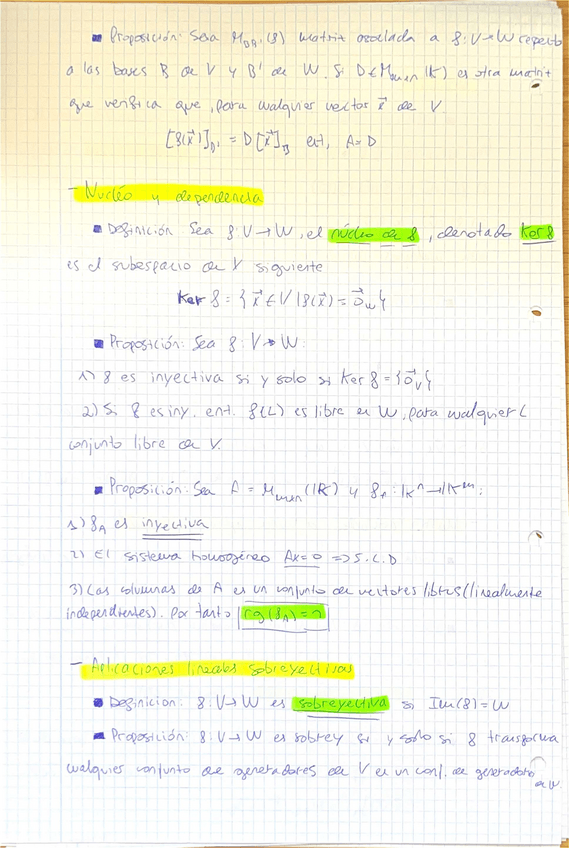 ■ Proposición: Sea M_BB'(f) matriz asociada a f: V→W respecto
a las bases B de V y B' de W. Si D ∈ M_mxn(K) es otra matriz
que verifica que, para cualquier vector x⃗ de V
[f(x⃗)]_B' = D[x⃗]_B ent, A=D
- Nucléo y dependencia
■ Definición Sea f: V→W, el núcleo de f, denotado Ker f
es el subespacio de V siguiente
Ker f = {x⃗ ∈ V | f(x⃗) = 0⃗_W}
■ Proposición: Sea f: V→W:
1) f es inyectiva si y solo si Ker f = {0⃗_V}
2) Si f es iny. ent. f(L) es libre en W, para cualquier L
conjunto libre de V.
■ Proposición: Sea A = M_mxn(K) y f_A: K^n→K^m:
1) f_A es inyectiva
2) El sistema homogéneo Ax=0 => S.C.D
3) Las columnas de A es un conjunto de vectores libres (linealmente
independientes). Por tanto rg(f_A)=n
- Aplicaciones lineales sobreyectivas
■ Definicion: f: V→W es sobreyectiva si Im(f)=W
■ Proposición: f: V→W es sobrey si y solo si f transforma
cualquier conjunto de generadores de V en un conj. de generadores
de W.